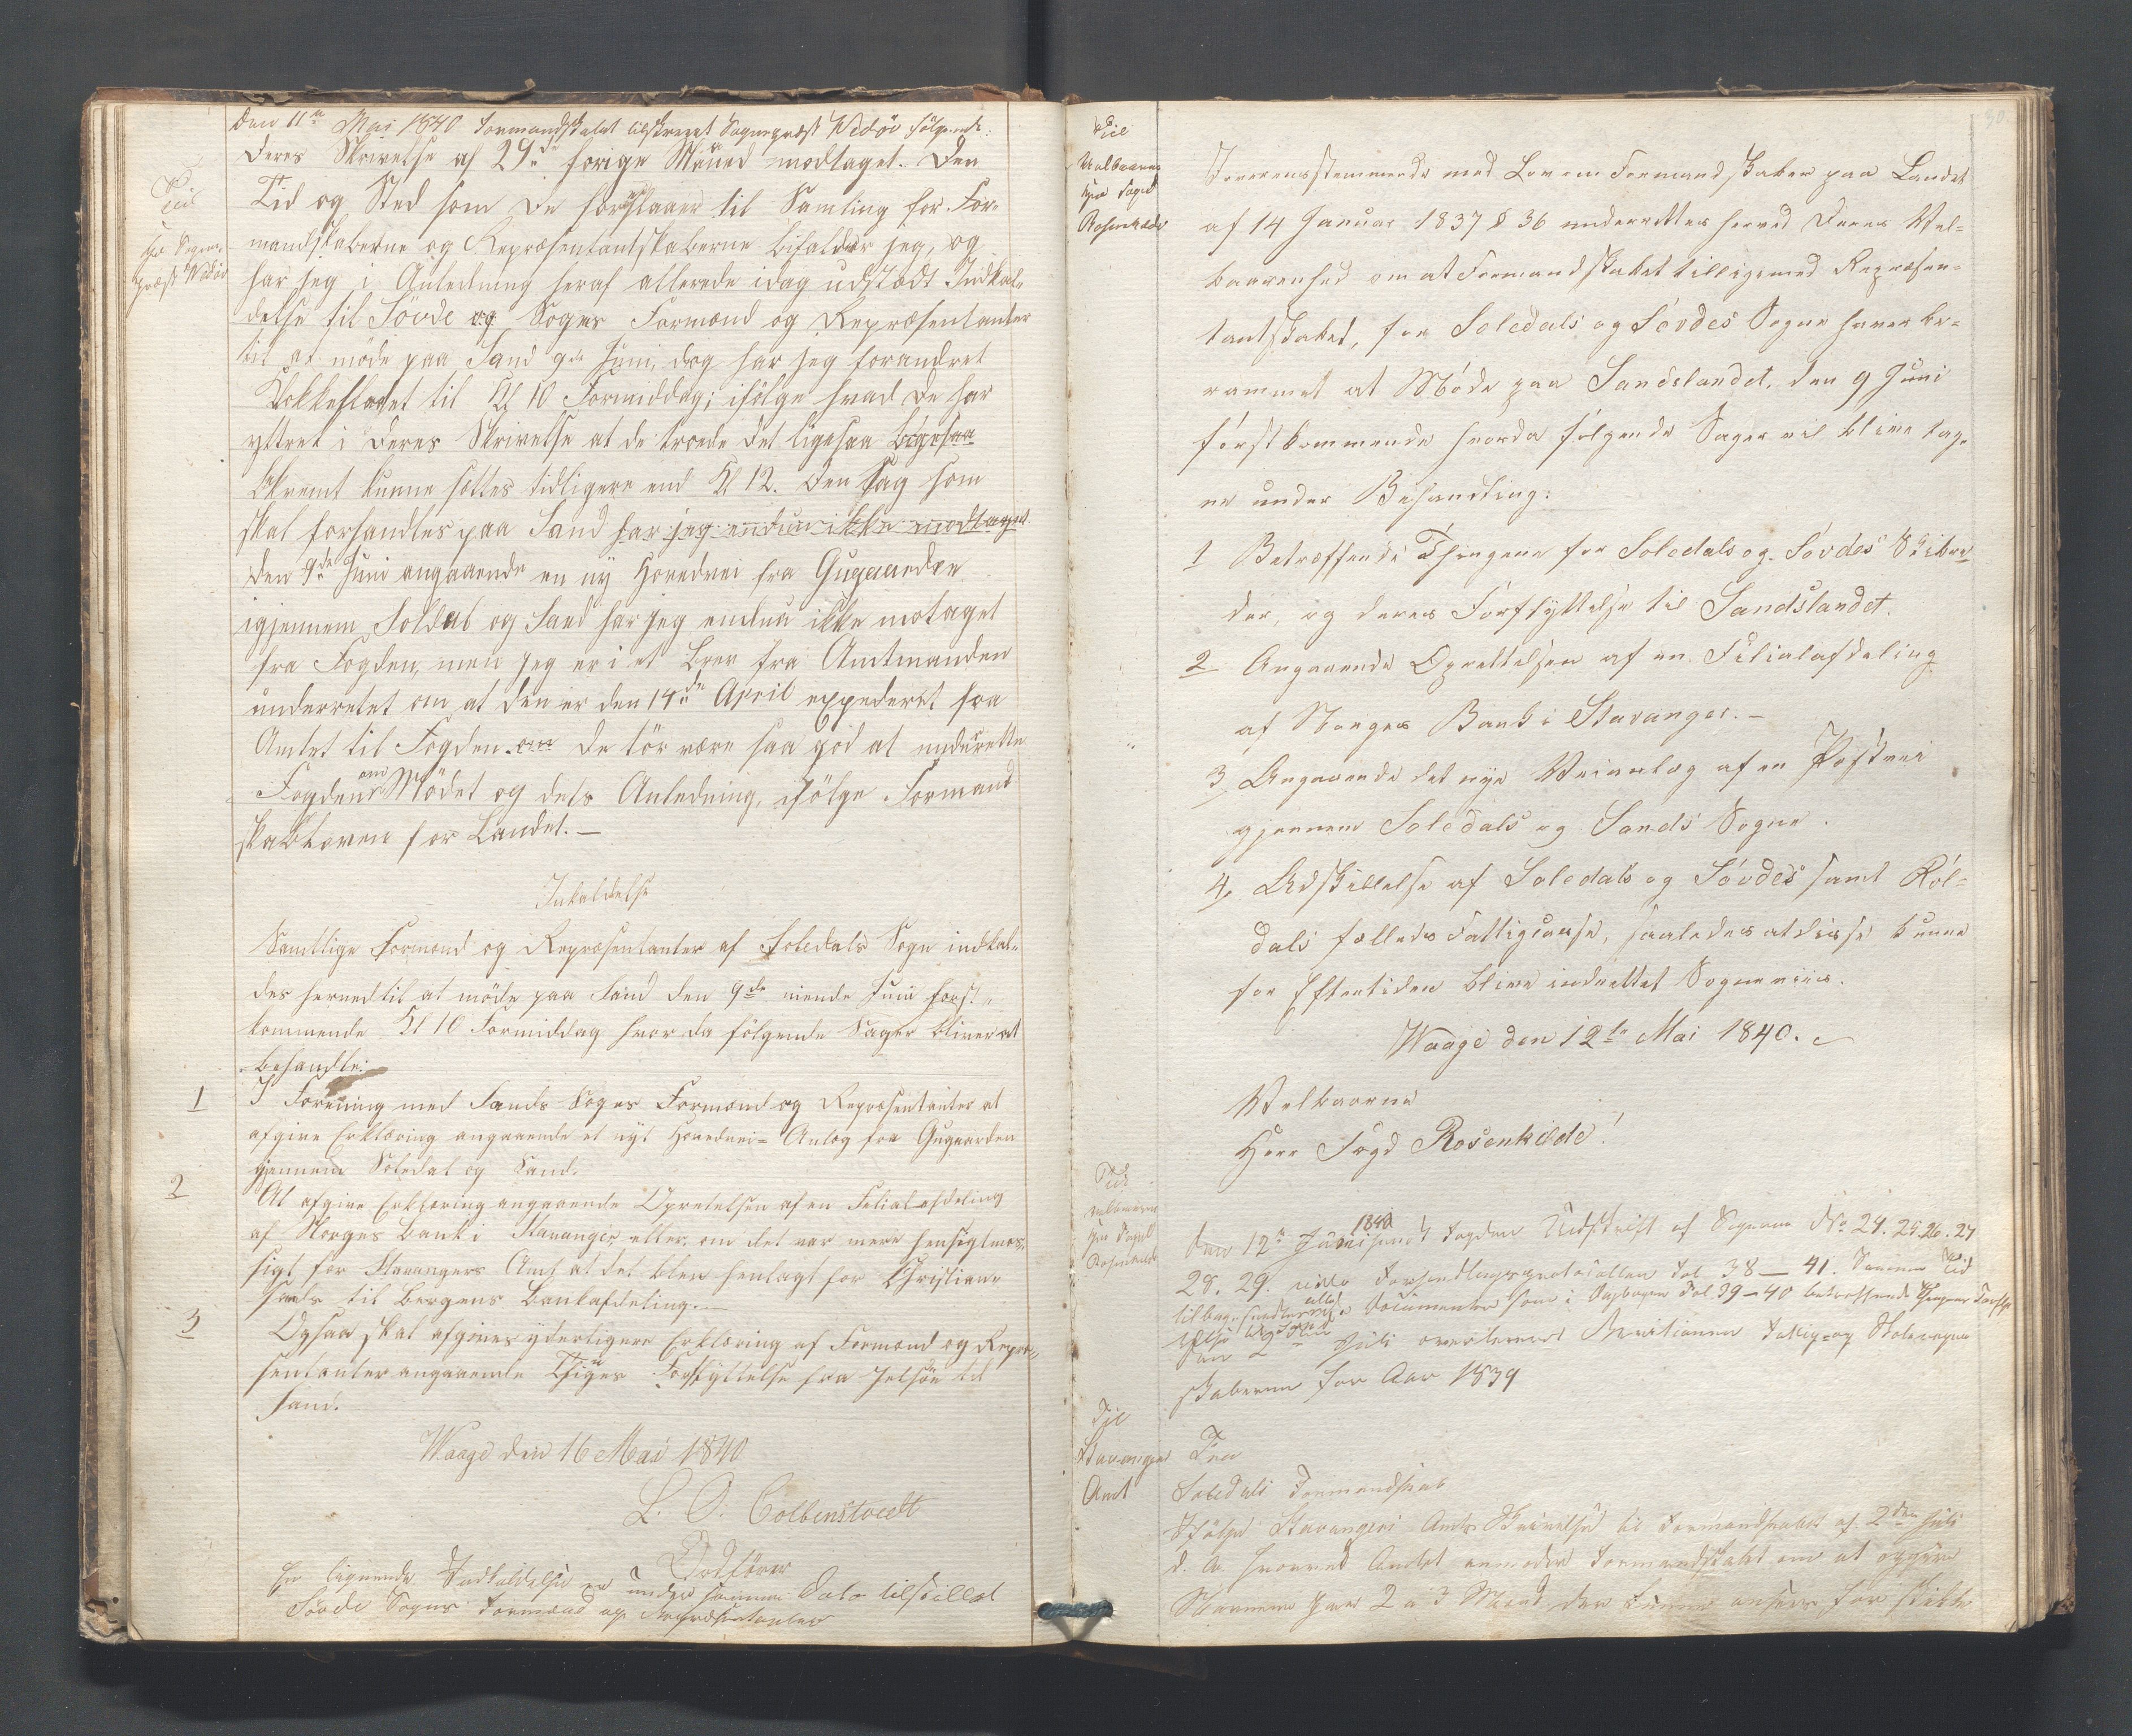 Den 11te Mai 1840 Formandskabet tilskrevet Sognepræst Widöe følgende:
Til
Hr Sogne-
præst Widöe
Deres Skrivelse af 29de forige Maaned modtaget. Den
Tid og Sted som De foreslaaer til Samling for For-
mandskaberne og Repræsentantskaberne bifalder jeg, og
har jeg i Anledning heraf allerede idag udstædt Indkal-
delse til Sövde og Sogns Formænd og Repræsentanter
til at möde paa Sand 9de Juni, dog har jeg forandret
Klokkeslæet til Kl 10 Formiddag; ifölge hvad De har
yttret i Deres Skrivelse at de troede det ligesaa ligesaa
bekvemt kunne sættes tidligere end Kl 12. Den Sag som
skal forhandles paa Sand har jeg endnu ikke modtaget
den 9de Juni angaaende en ny Hovedvei fra Gugaarden
igjennem Soldal og Sand har jeg endnu ikke motaget
fra Fogden, men jeg er i et Brev fra Amtmanden
underretet om at den er den 14de April expederet fra
Amtet til Fogden. om De tör være saa god at underrette
Fogden om Mödet og dets Anledning, ifölge Formand
skabsloven for Landet. —
Inkaldelse
Samtlige Formænd og Repræsentanter af Soledals Sogn indkal-
des herved til at möde paa Sand den 9de niende Juni först-
kommende Kl 10 Formiddag hvor da fölgende Sager bliver at
behandle:
1 I Forening med Sands Sogns Formænd og Repræsentanter at
afgive Erklæring angaaende et nyt Hovedvei- Anlæg fra Gugaarden
gjennem Soledal og Sand.
2 At afgive Erklæring angaaende Opretelsen af en Felialafdeling
af Norges Bank i Stavanger, eller om det var mere hensigtmæs-
sigt for Stavangers Amt at det blev henlagt for Christian-
sands til Bergens bankafdeling. —
3 Ogsaa skal afgives yderligere Erklæring af Formænd og Repræ-
sentanter angaaende Thinges Forflyttelse fra Jelsöe til
Sand.
Waage den 16 Mai 1840
L. O. Colbenstvedt
Ordförer
En lignende Indkaldelse er under samme Dato tilstillet
Sövde Sogns Formænd og Repræsentanter
Til
Velbaarne
Hr Foged
Rosenkilde
Overensstemmende med Lov om Formandskaber paa Landet
af 14 Januar 1837 § 36 underrettes herved Deres Vel-
baarenhed om at Formandskabet tilligemed Repræsen-
tantskabet, for Soledals og Sövdes Sogne haver be-
rammet at Möde paa Sandslandet, den 9 Juni
förstkommende hvorda fölgende Sager vil blive tag-
ne under Behandling:
1 Betræffende Thingene for Soledals og Sövdes Skibre-
der, og deres Forflyttelse til Sandslandet.
2 Angaaende Oprettelsen af en Filialafdeling
af Norges Bank i Stavanger. —
3 Angaaende det nye Veianlæg af en Postvei
gjennem Soledals og Sands Sogne.
4. Adskillelse af Soledals og Sövdes samt Röl-
dals fælleds Fattigcasse, saaledes at disse kunne
for Eftertiden blive indrettet Sogneviis.
Waage den 12te Mai 1840.
Velbaarne
Herr Fogd Rosenkilde!
Til
velbaarne
Hr Foged
Rosenkilde
Den 12te Juni 1840 sendt Fogden Udskrift af Sagerne No 24. 25. 26. 27
28. 29. Forhandlingsprotocollen Fol 38 — 41. Samme Tid
tilbagesendt alle Documenter som i Dagbogen Fol 39–40 betreffende Thingenes Forfly-
telse til Sand
Den 2de Juli overleveret Fattig- og Skoleregn-
skaberne for Aar 1839
Til
Stavanger
Amt
Fra
Soledals Formandskab
Ifölge Stavangers Amts Skrivelse til Formandskabet af 2den Juli
d. A. hvorved Amtet anmoder Formandskabet om at opgive
Navnene paa 2 à 3 Mænd der kunne ansees for skikke